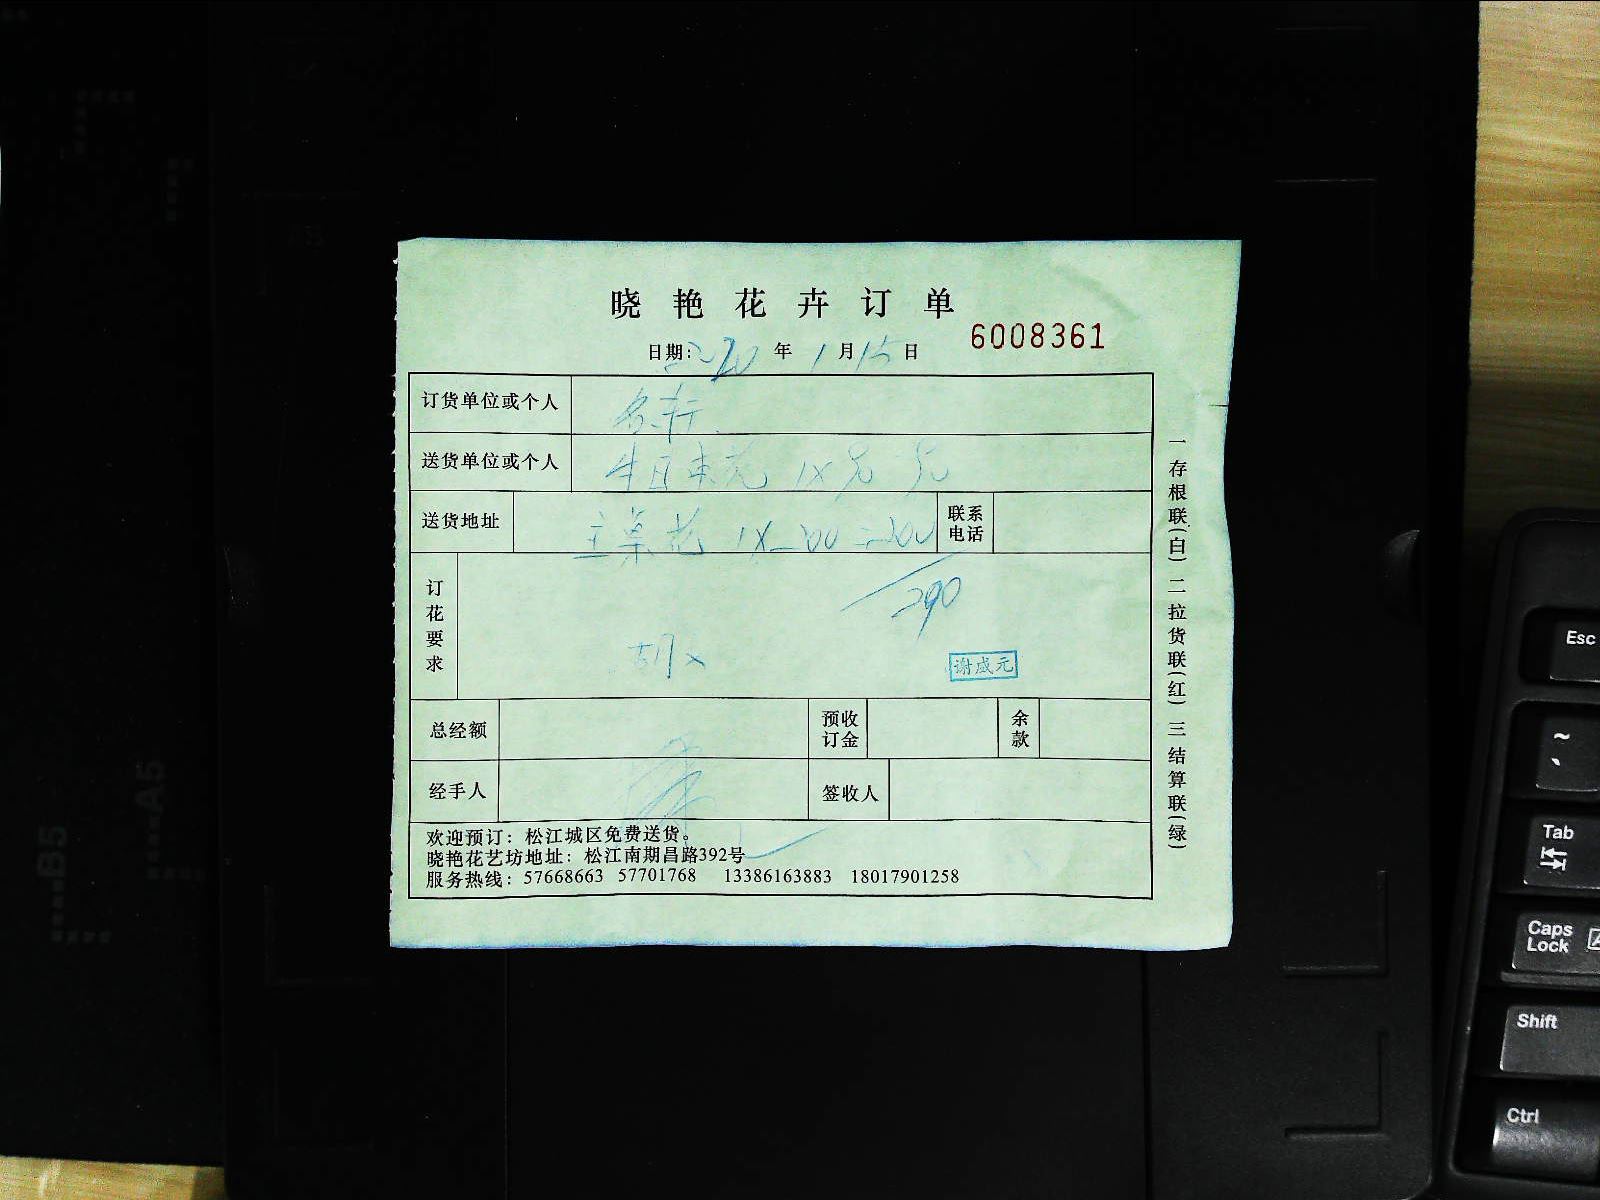 晓艳花卉订单
6008361
日期: 2020 年 1 月 15 日
订货单位或个人
送货单位或个人
送货地址 主桌花 1X200=200 联系电话
订花要求
290
谢成元
总经额 预收订金 余款
经手人 签收人
欢迎预订：松江城区免费送货。
晓艳花艺坊地址：松江南期昌路392号
服务热线：57668663 57701768 13386163883 18017901258
一存根联(白) 二拉货联(红) 三结算联(绿)
B5
A5
Esc
~
Tab
Caps Lock
Shift
Ctrl